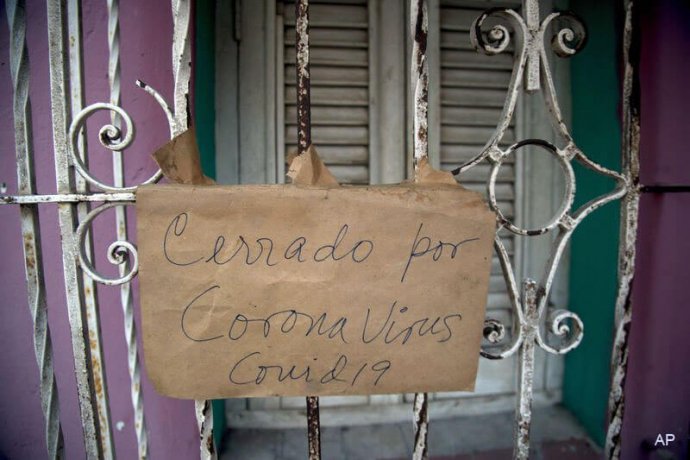 Cerrado por
Corona Virus
Covid19
AP